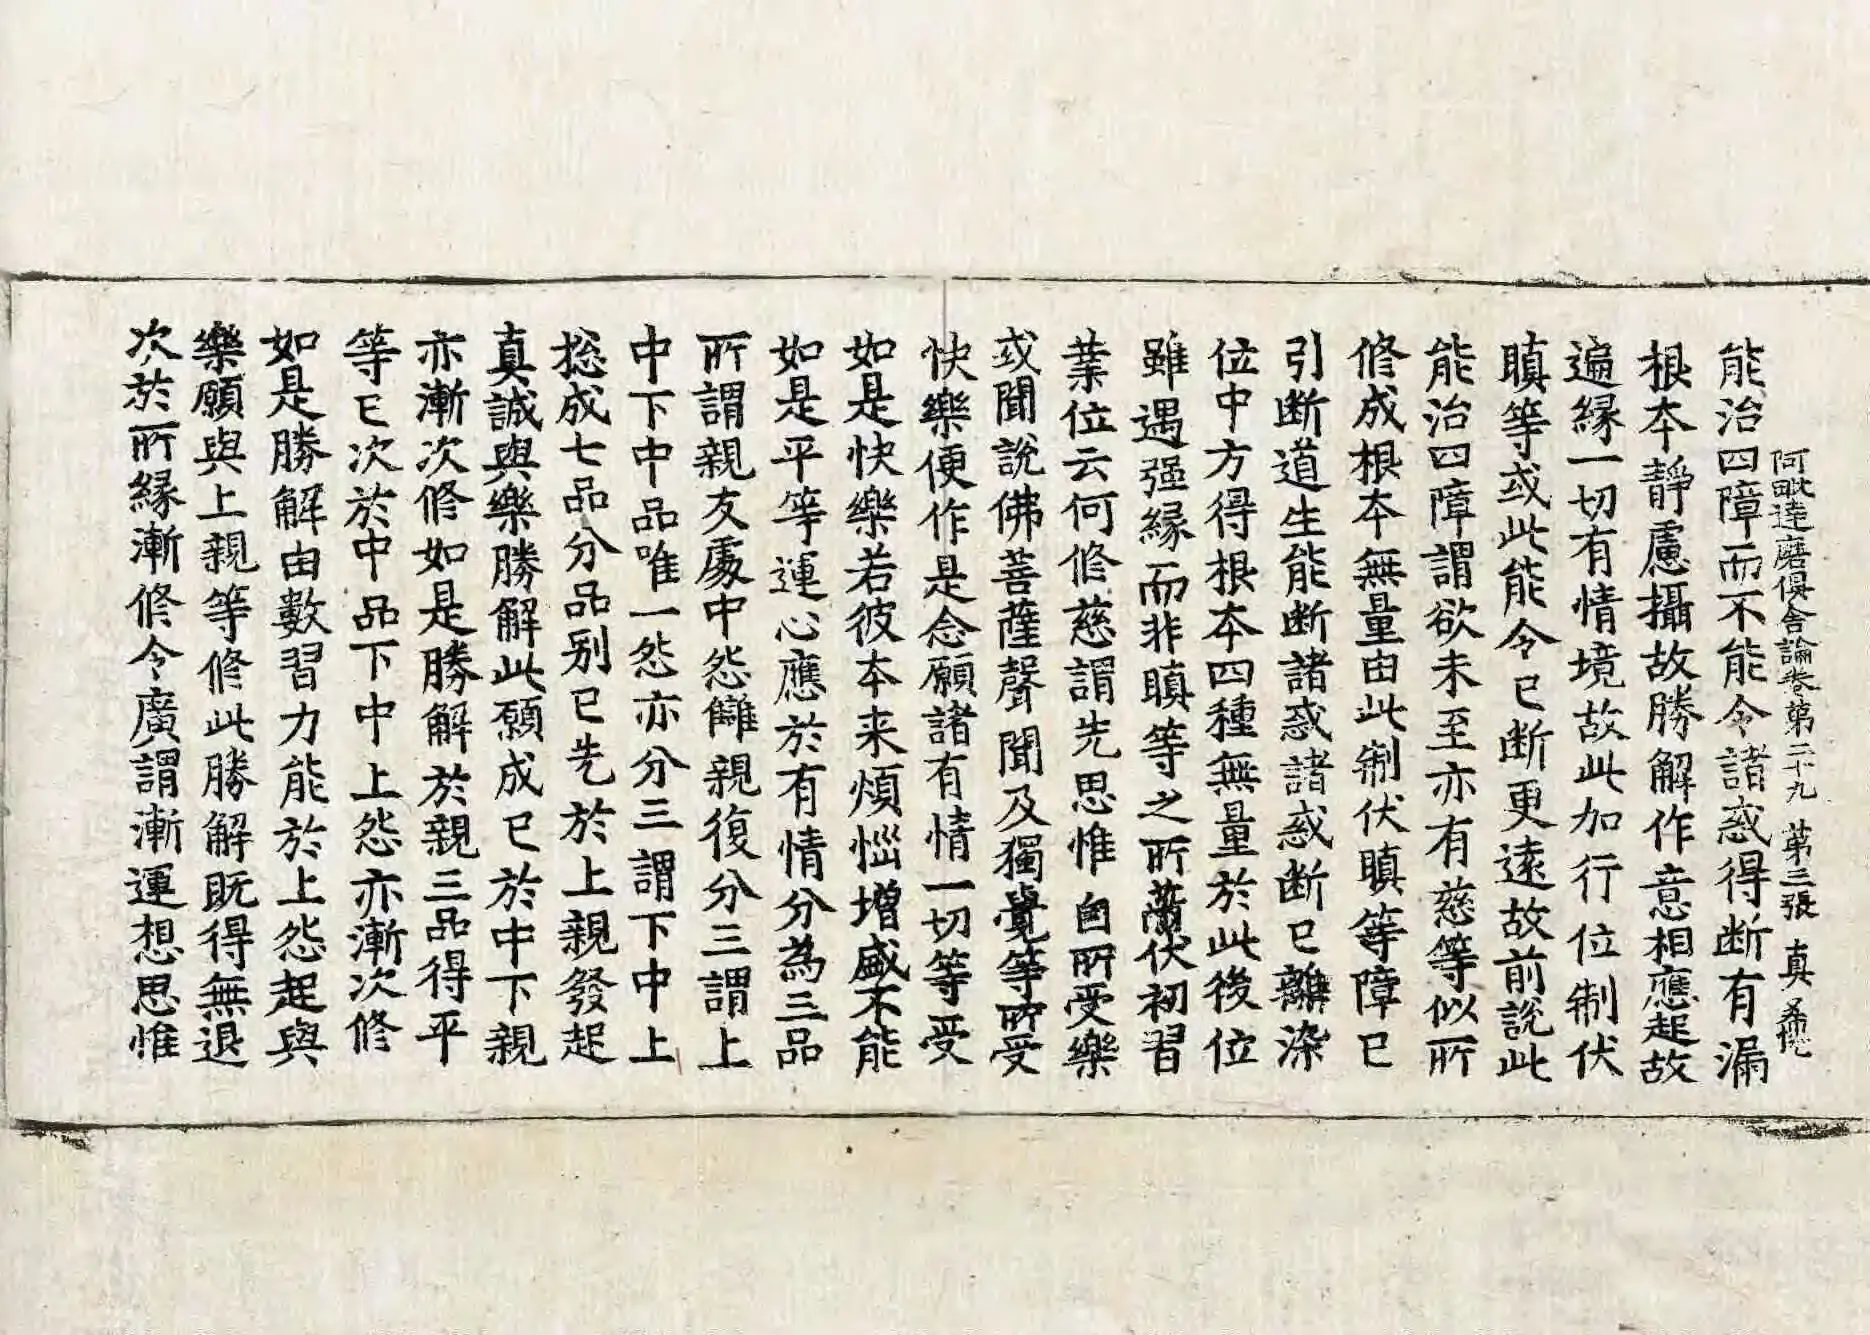 阿毗達磨俱舍論卷第二十九 第三張 真
能治四障而不能令諸惑得断有漏
根本静慮攝故勝解作意相應起故
遍緣一切有情境故此加行位制伏
瞋等或此能令已断更遠故前說此
能治四障謂欲未至亦有慈等似所
修成根本無量由此制伏瞋等障已
引断道生能断諸惑諸惑断已離染
位中方得根本四種無量於此後位
雖遇强緣而非瞋等之所蔽伏初習
業位云何修慈謂先思惟自所受樂
或聞說佛菩薩聲聞及獨覺等所受
快樂便作是念願諸有情一切等受
如是快樂若彼本来煩惱增盛不能
如是平等運心應於有情分為三品
所謂親友處中怨讎親復分三謂上
中下中品唯一怨亦分三謂下中上
捴成七品分品别已先於上親發起
真誠與樂勝解此願成已於中下親
亦漸次修如是勝解於親三品得平
等已次於中品下中上怨亦漸次修
如是勝解由數習力能於上怨起與
樂願與上親等修此勝解既得無退
次於所緣漸修令廣謂漸運想思惟